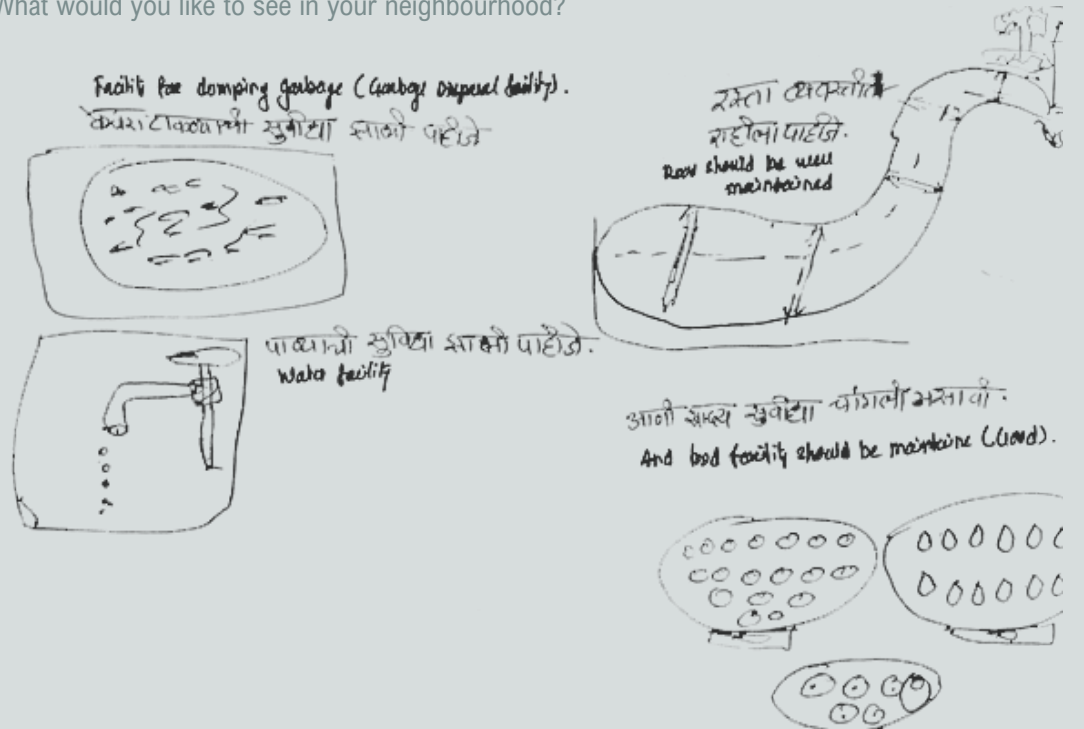 What would you like to see in your neighbourhood?
Facilit for domping garbage (Garbage Disposal facility).
कचरा टाकव्याची सुवीधा झाली पाहीजे
रस्ता व्यवस्तीत
राहीला पाहीजे.
Road should be well
maintained
पाण्याची सुविधा झाली पाहीजे.
Water facility
आणी खाद्य सुवीधा चांगली असावी.
And food facility should be maintaine (Good).